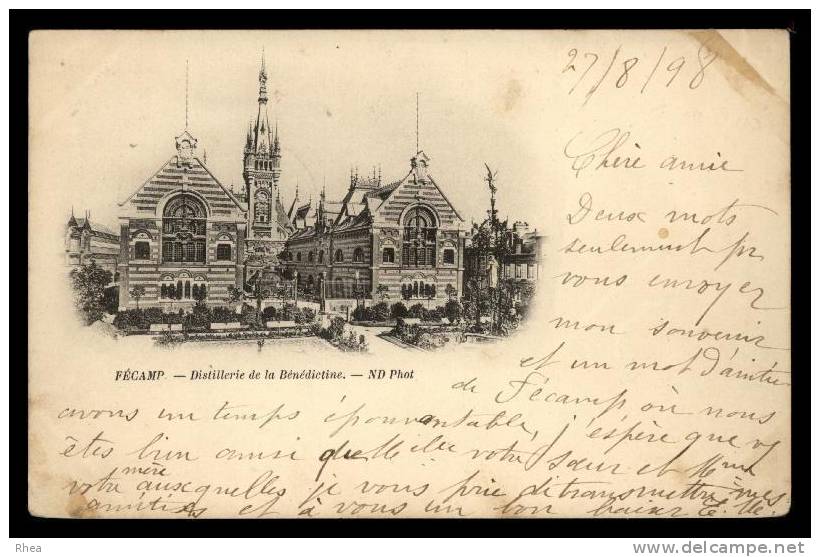 27/8/98
Chère amie
Deux mots
seulement pr
vous envoyer
mon souvenir
et un mot d'amitié
de Fécamp, où nous
avons un temps épouvantable, j'espère que vs
êtes bien ainsi que votre sœur et Mme
votre mère auxquelles je vous prie de transmettre mes
amitiés et à vous un bon baiser
FÉCAMP. — Distillerie de la Bénédictine. — ND Phot
Rhea
http://www.delcampe.net